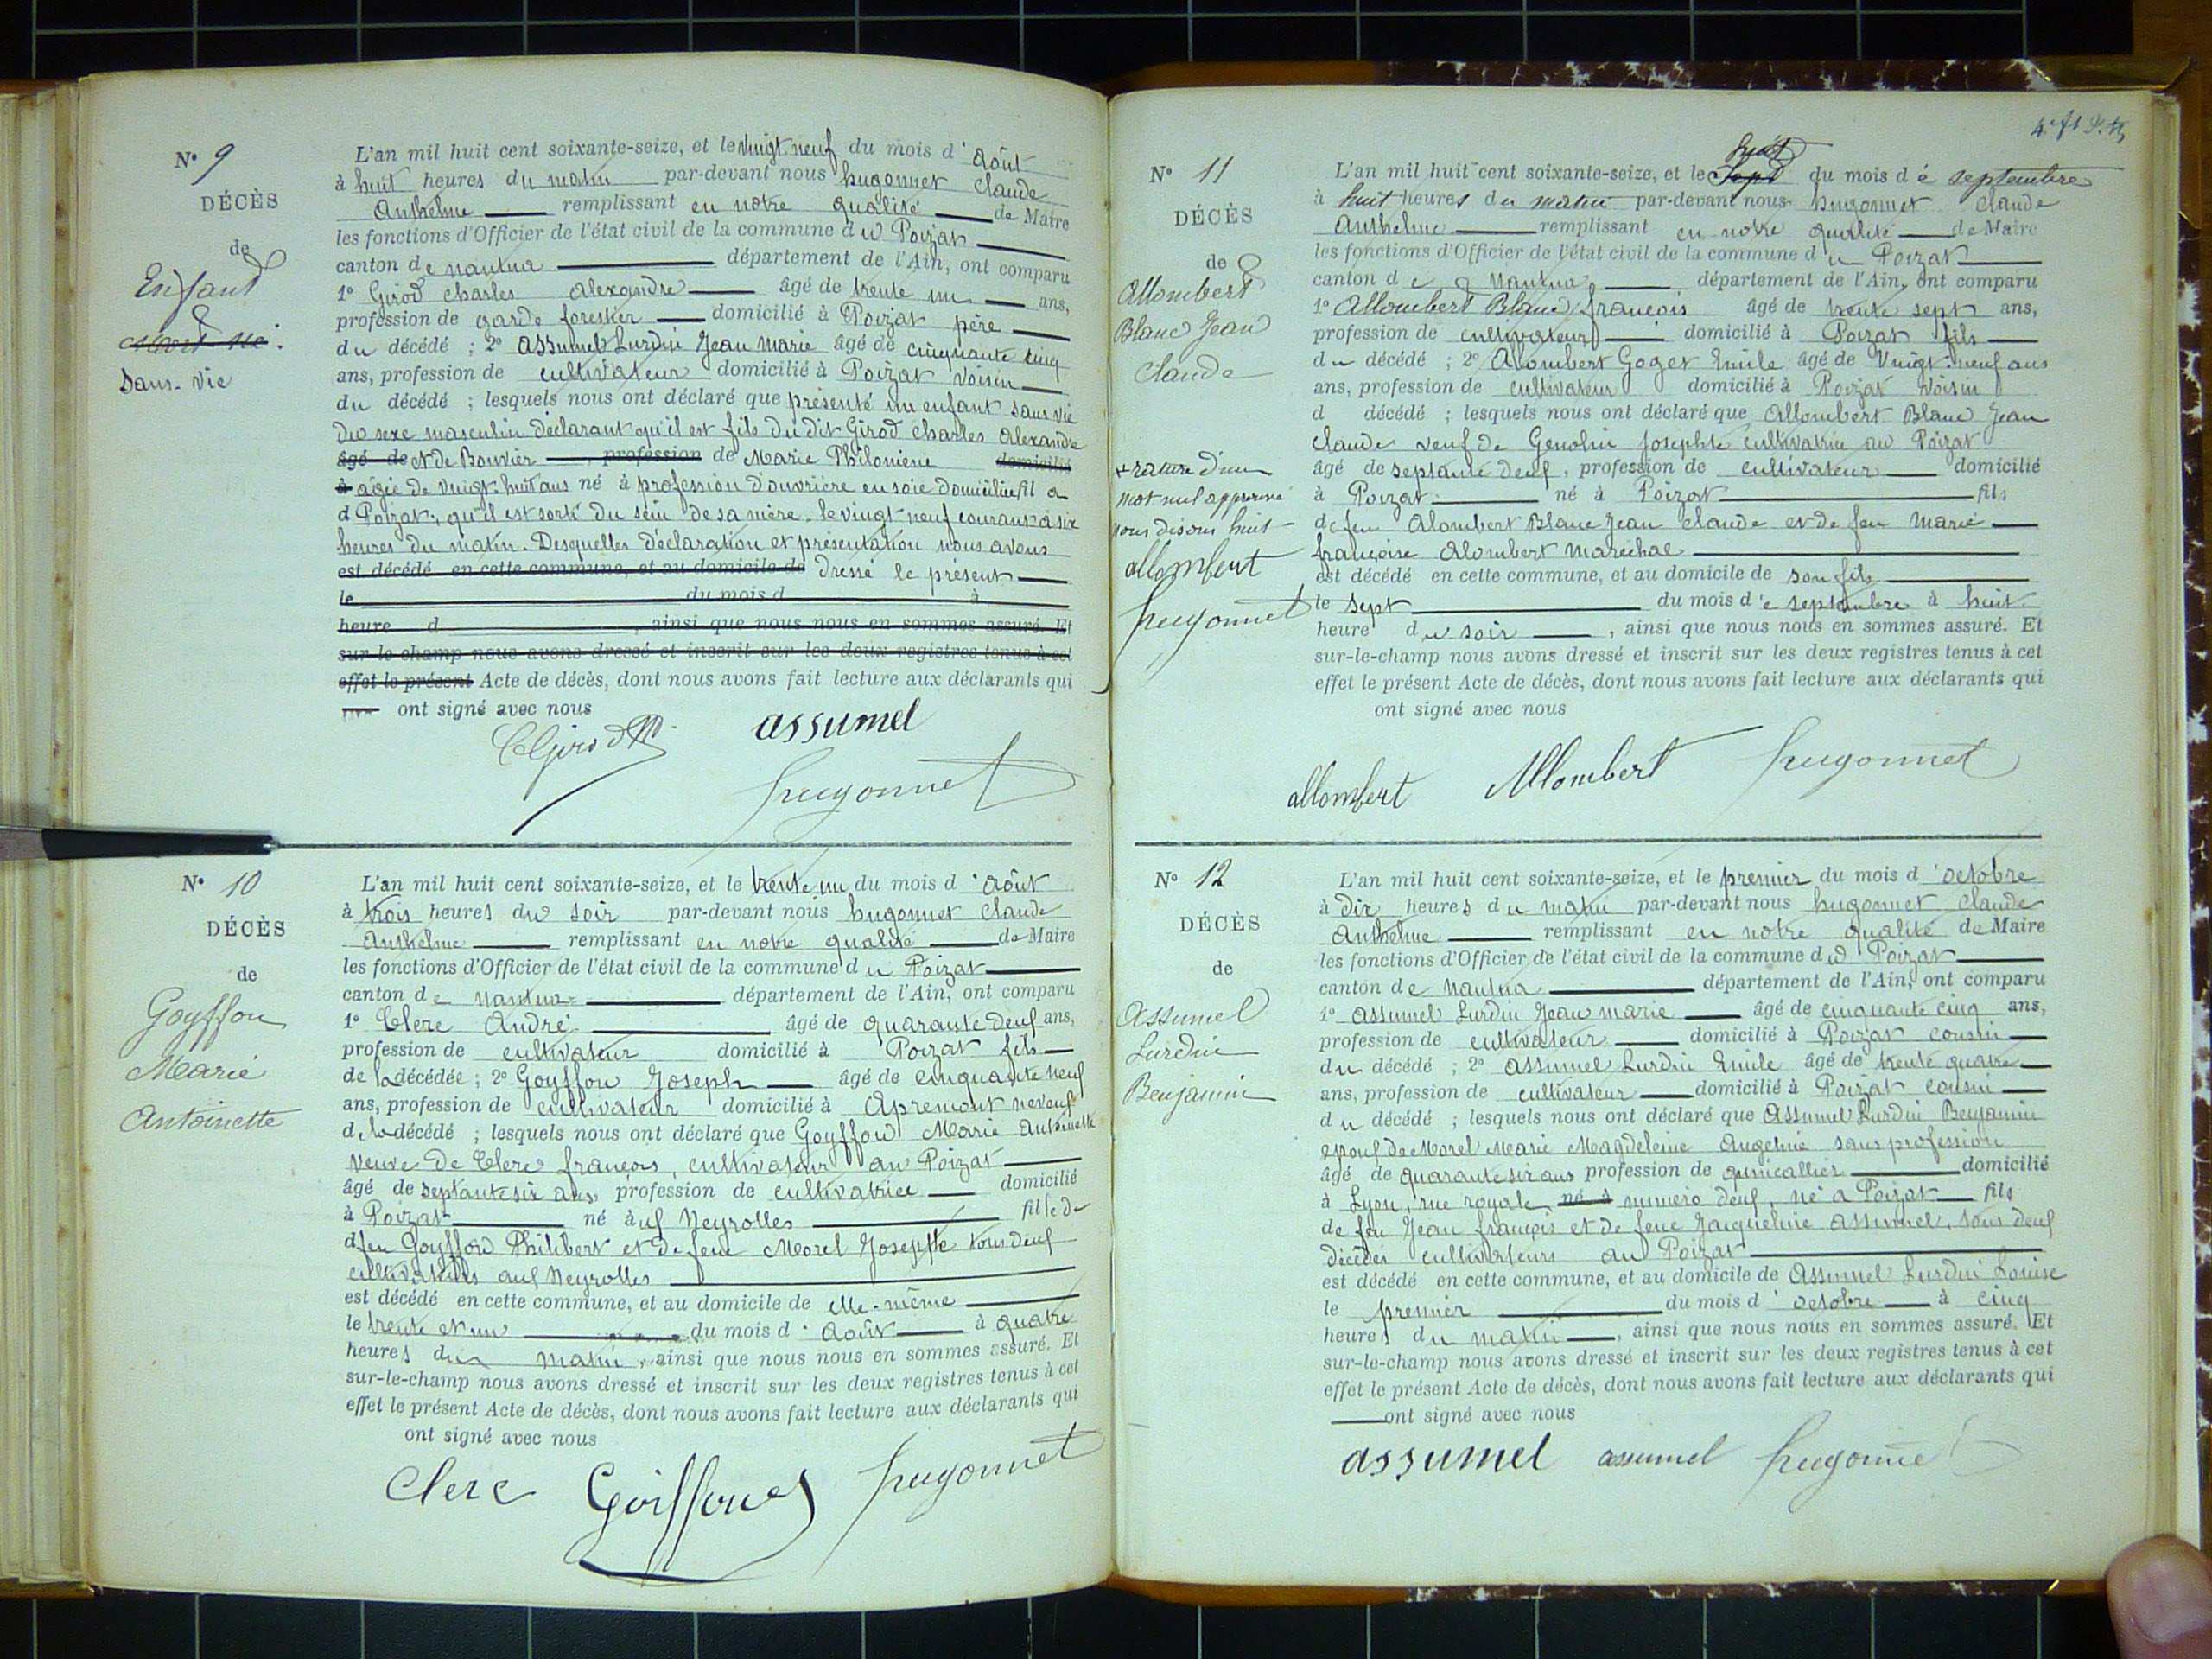 N° 9
DÉCÈS
de
Enfant
mort-né.
Sans-vie
L'an mil huit cent soixante-seize, et le vingt neuf du mois d'août
à huit heures du matin par-devant nous hugonnet Claude
Anthelme remplissant en notre qualité de Maire
les fonctions d'Officier de l'état civil de la commune du Poizat
canton de nantua département de l'Ain, ont comparu
1° Girod Charles Alexandre âgé de trente un ans,
profession de garde forestier domicilié à Poizat père
du décédé ; 2° Assumel Lurdin Jean Marie âgé de cinquante cinq
ans, profession de cultivateur domicilié à Poizat voisin
du décédé ; lesquels nous ont déclaré que présenté un enfant sans vie
du sexe masculin déclarant qu'il est fils du dit Girod Charles Alexandre
âgé de et de Bouvier , profession de Marie Philomene domicilié
à agée de vingt-huit ans né à profession d'ouvrière en soie domiciliée fil a
d Poizat, qu'il est sorti du sein de sa mère le vingt neuf courant à six
heures du matin. Desquelles déclaration et présentation nous avons
est décédé en cette commune, et au domicile de dressé le présent
le du mois d à
heure d , ainsi que nous nous en sommes assuré. Et
sur-le-champ nous avons dressé et inscrit sur les deux registres tenus à cet
effet le présent Acte de décès, dont nous avons fait lecture aux déclarants qui
ont signé avec nous
assumel
hugonnet
N° 10
DÉCÈS
de
Goyffon
Marie
Antoinette
L'an mil huit cent soixante-seize, et le trente un du mois d'août
à trois heures du soir par-devant nous hugonnet Claude
Anthelme remplissant en notre qualité de Maire
les fonctions d'Officier de l'état civil de la commune du Poizat
canton de nantua département de l'Ain, ont comparu
1° Clerc André âgé de quarante deux ans,
profession de cultivateur domicilié à Poizat fils
de la décédée ; 2° Goyffon Joseph âgé de cinquante neuf
ans, profession de cultivateur domicilié à Apremont neveux
de la décédé ; lesquels nous ont déclaré que Goyffon Marie Antoinette
veuve de Clerc françois, cultivateur au Poizat
âgé de septante six ans, profession de cultivatrice domicilié
à Poizat né aux Neyrolles fille de
d feu Goyffon Philibert et de feue Morel Josephte tous deux
cultivateurs aux Neyrolles
est décédé en cette commune, et au domicile de elle-même
le trente et un du mois d'août à quatre
heures du matin, ainsi que nous nous en sommes assuré. Et
sur-le-champ nous avons dressé et inscrit sur les deux registres tenus à cet
effet le présent Acte de décès, dont nous avons fait lecture aux déclarants qui
ont signé avec nous
Clerc Goiffon hugonnet
N° 11
DÉCÈS
de
Allombert
Blanc Jean
Claude
+ rature d'un
mot nul approuvé
nous disons huit
allombert
hugonnet
huit
L'an mil huit cent soixante-seize, et le Sept du mois de septembre
à huit heures du matin par-devant nous hugonnet Claude
Anthelme remplissant en notre qualité de Maire
les fonctions d'Officier de l'état civil de la commune du Poizat
canton de Nantua département de l'Ain, ont comparu
1° Allombert Blanc françois âgé de trente sept ans,
profession de cultivateur domicilié à Poizat fils
du décédé ; 2° Alombert Goget Emile âgé de Vingt-neuf ans
ans, profession de cultivateur domicilié à Poizat voisin
d décédé ; lesquels nous ont déclaré que Allombert Blanc Jean
Claude veuf de Genolin Josephte cultivatrice au Poizat
âgé de septante deux, profession de cultivateur domicilié
à Poizat né à Poizat fils
de feu Alombert Blanc Jean Claude et de feu Marie
françoise Alombert Maréchal
est décédé en cette commune, et au domicile de son fils
le sept du mois de septembre à huit
heure du soir , ainsi que nous nous en sommes assuré. Et
sur-le-champ nous avons dressé et inscrit sur les deux registres tenus à cet
effet le présent Acte de décès, dont nous avons fait lecture aux déclarants qui
ont signé avec nous
allombert Allombert hugonnet
N° 12
DÉCÈS
de
Assumel
Lurdin
Benjamin
L'an mil huit cent soixante-seize, et le premier du mois d'octobre
à dix heures du matin par-devant nous hugonnet Claude
Anthelme remplissant en notre qualité de Maire
les fonctions d'Officier de l'état civil de la commune du Poizat
canton de Nantua département de l'Ain, ont comparu
1° Assumel Lurdin Jean marie âgé de cinquante cinq ans,
profession de cultivateur domicilié à Poizat cousin
du décédé ; 2° Assumel Lurdin Emile âgé de trente quatre
ans, profession de cultivateur domicilié à Poizat cousin
du décédé ; lesquels nous ont déclaré que Assumel Lurdin Benjamin
epoux de Morel Marie Magdeleine Angeline sans profession
âgé de quarante six ans profession de quincallier domicilié
à Lyon, rue royale, né à numéro deux, né a Poizat fils
de feu Jean françois et de feue Jacqueline Assumel, tous deux
décédés cultivateurs au Poizat
est décédé en cette commune, et au domicile de Assumel Lurdin Louise
le premier du mois d'octobre à cinq
heures du matin , ainsi que nous nous en sommes assuré. Et
sur-le-champ nous avons dressé et inscrit sur les deux registres tenus à cet
effet le présent Acte de décès, dont nous avons fait lecture aux déclarants qui
ont signé avec nous
assumel assumel hugonnet